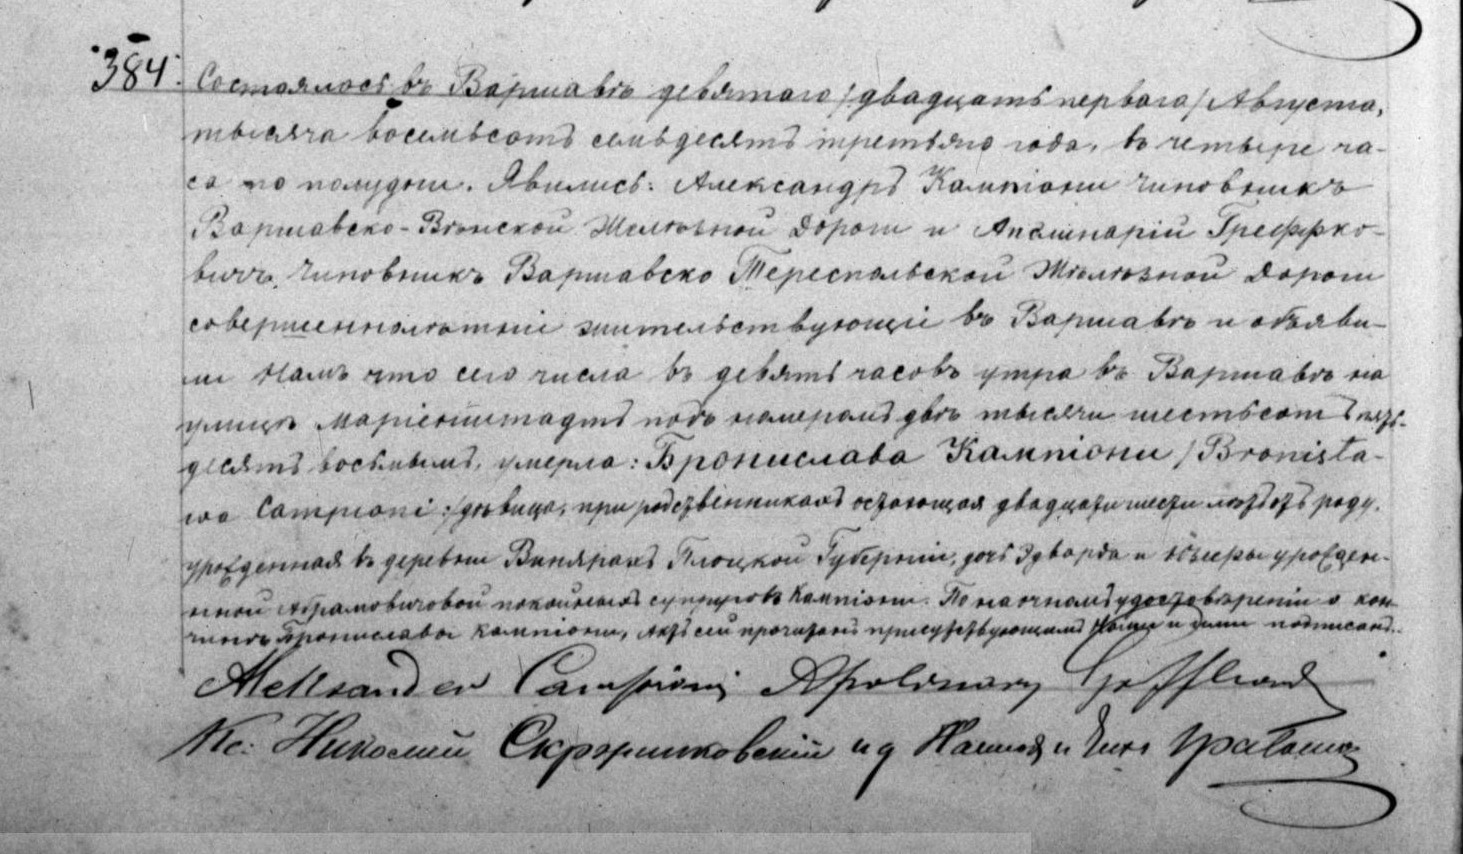 384. Состоялось въ Варшавѣ девятаго /двадцать перваго/ Августа,
тысяча восемьсотъ семьдесятъ третьяго года, въ четыре ча-
са по полудни. Явились: Александръ Кампіони чиновникъ
Варшавско-Вѣнской Желѣзной Дороги и Аполинарій Греффко-
вичъ, чиновникъ Варшавско Тереспольской Желѣзной Дороги
совершеннолѣтніе жительствующіе въ Варшавѣ и объяви-
ли Намъ что сего числа въ девять часовъ утра въ Варшавѣ на
улицѣ Маріенштадтъ подъ номеромъ двѣ тысячи шестьсотъ пять-
десятъ восьмымъ, умерла: Бронислава Кампіони /Bronisła-
wa Campioni:/ дѣвица, при родственникахъ остающая двадцати шести лѣтъ отъ роду,
урожденная въ деревни Винярахъ Плоцкой Губерніи, дочь Эдварда и
урожден-
ной Абрамовичовой покойныхъ супруговъ Кампіони. По наочномъ удостовѣреніи о кон-
чинѣ Брониславы Кампіони, Актъ сей прочитанъ присутствующимъ Нами и ими подписанъ.
Aleksander Campioni Apolinary
Кс: Николай Скржишковскій и д